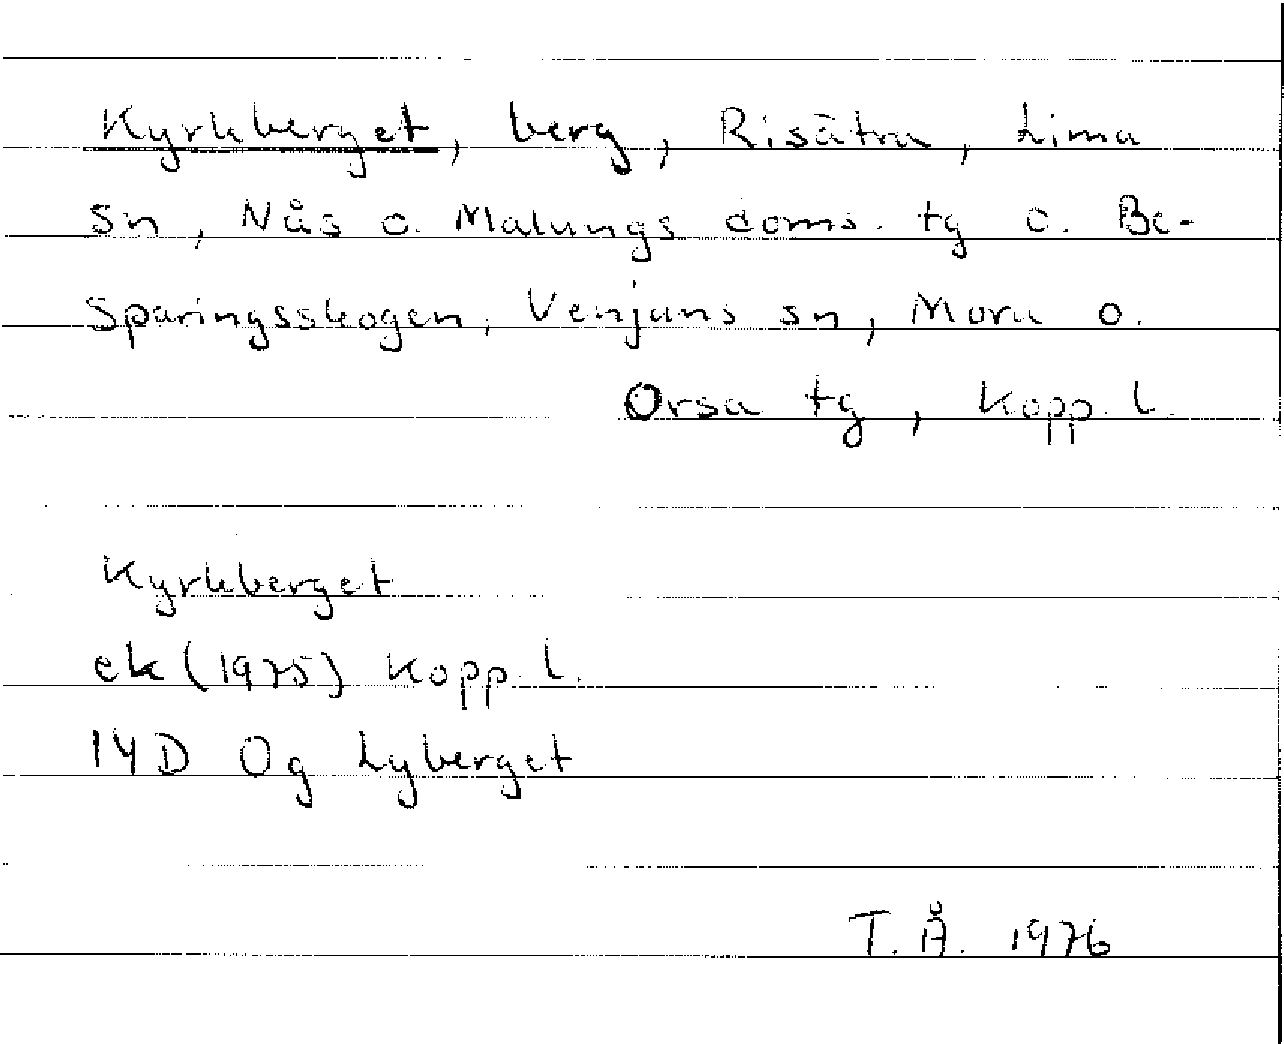 Kyrkberget, berg, Risätra, Lima
sn, Nås o. Malungs doms. tg o. Be-
sparingsskogen, Venjans sn, Mora o.
Orsa tg, Kopp. l.
Kyrkberget
ek (1975) Kopp. l.
14D 0g Lyberget
T. Å. 1976